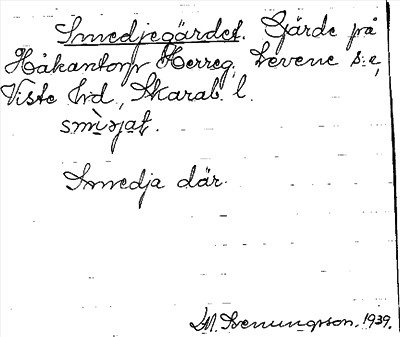 Smedjegärdet. Gärde på
Håkantorp Herreg. Levene s:n,
Viste hd, Skarab. l.
smìsjat.
Smedja där.
M. Svenungsson. 1939.